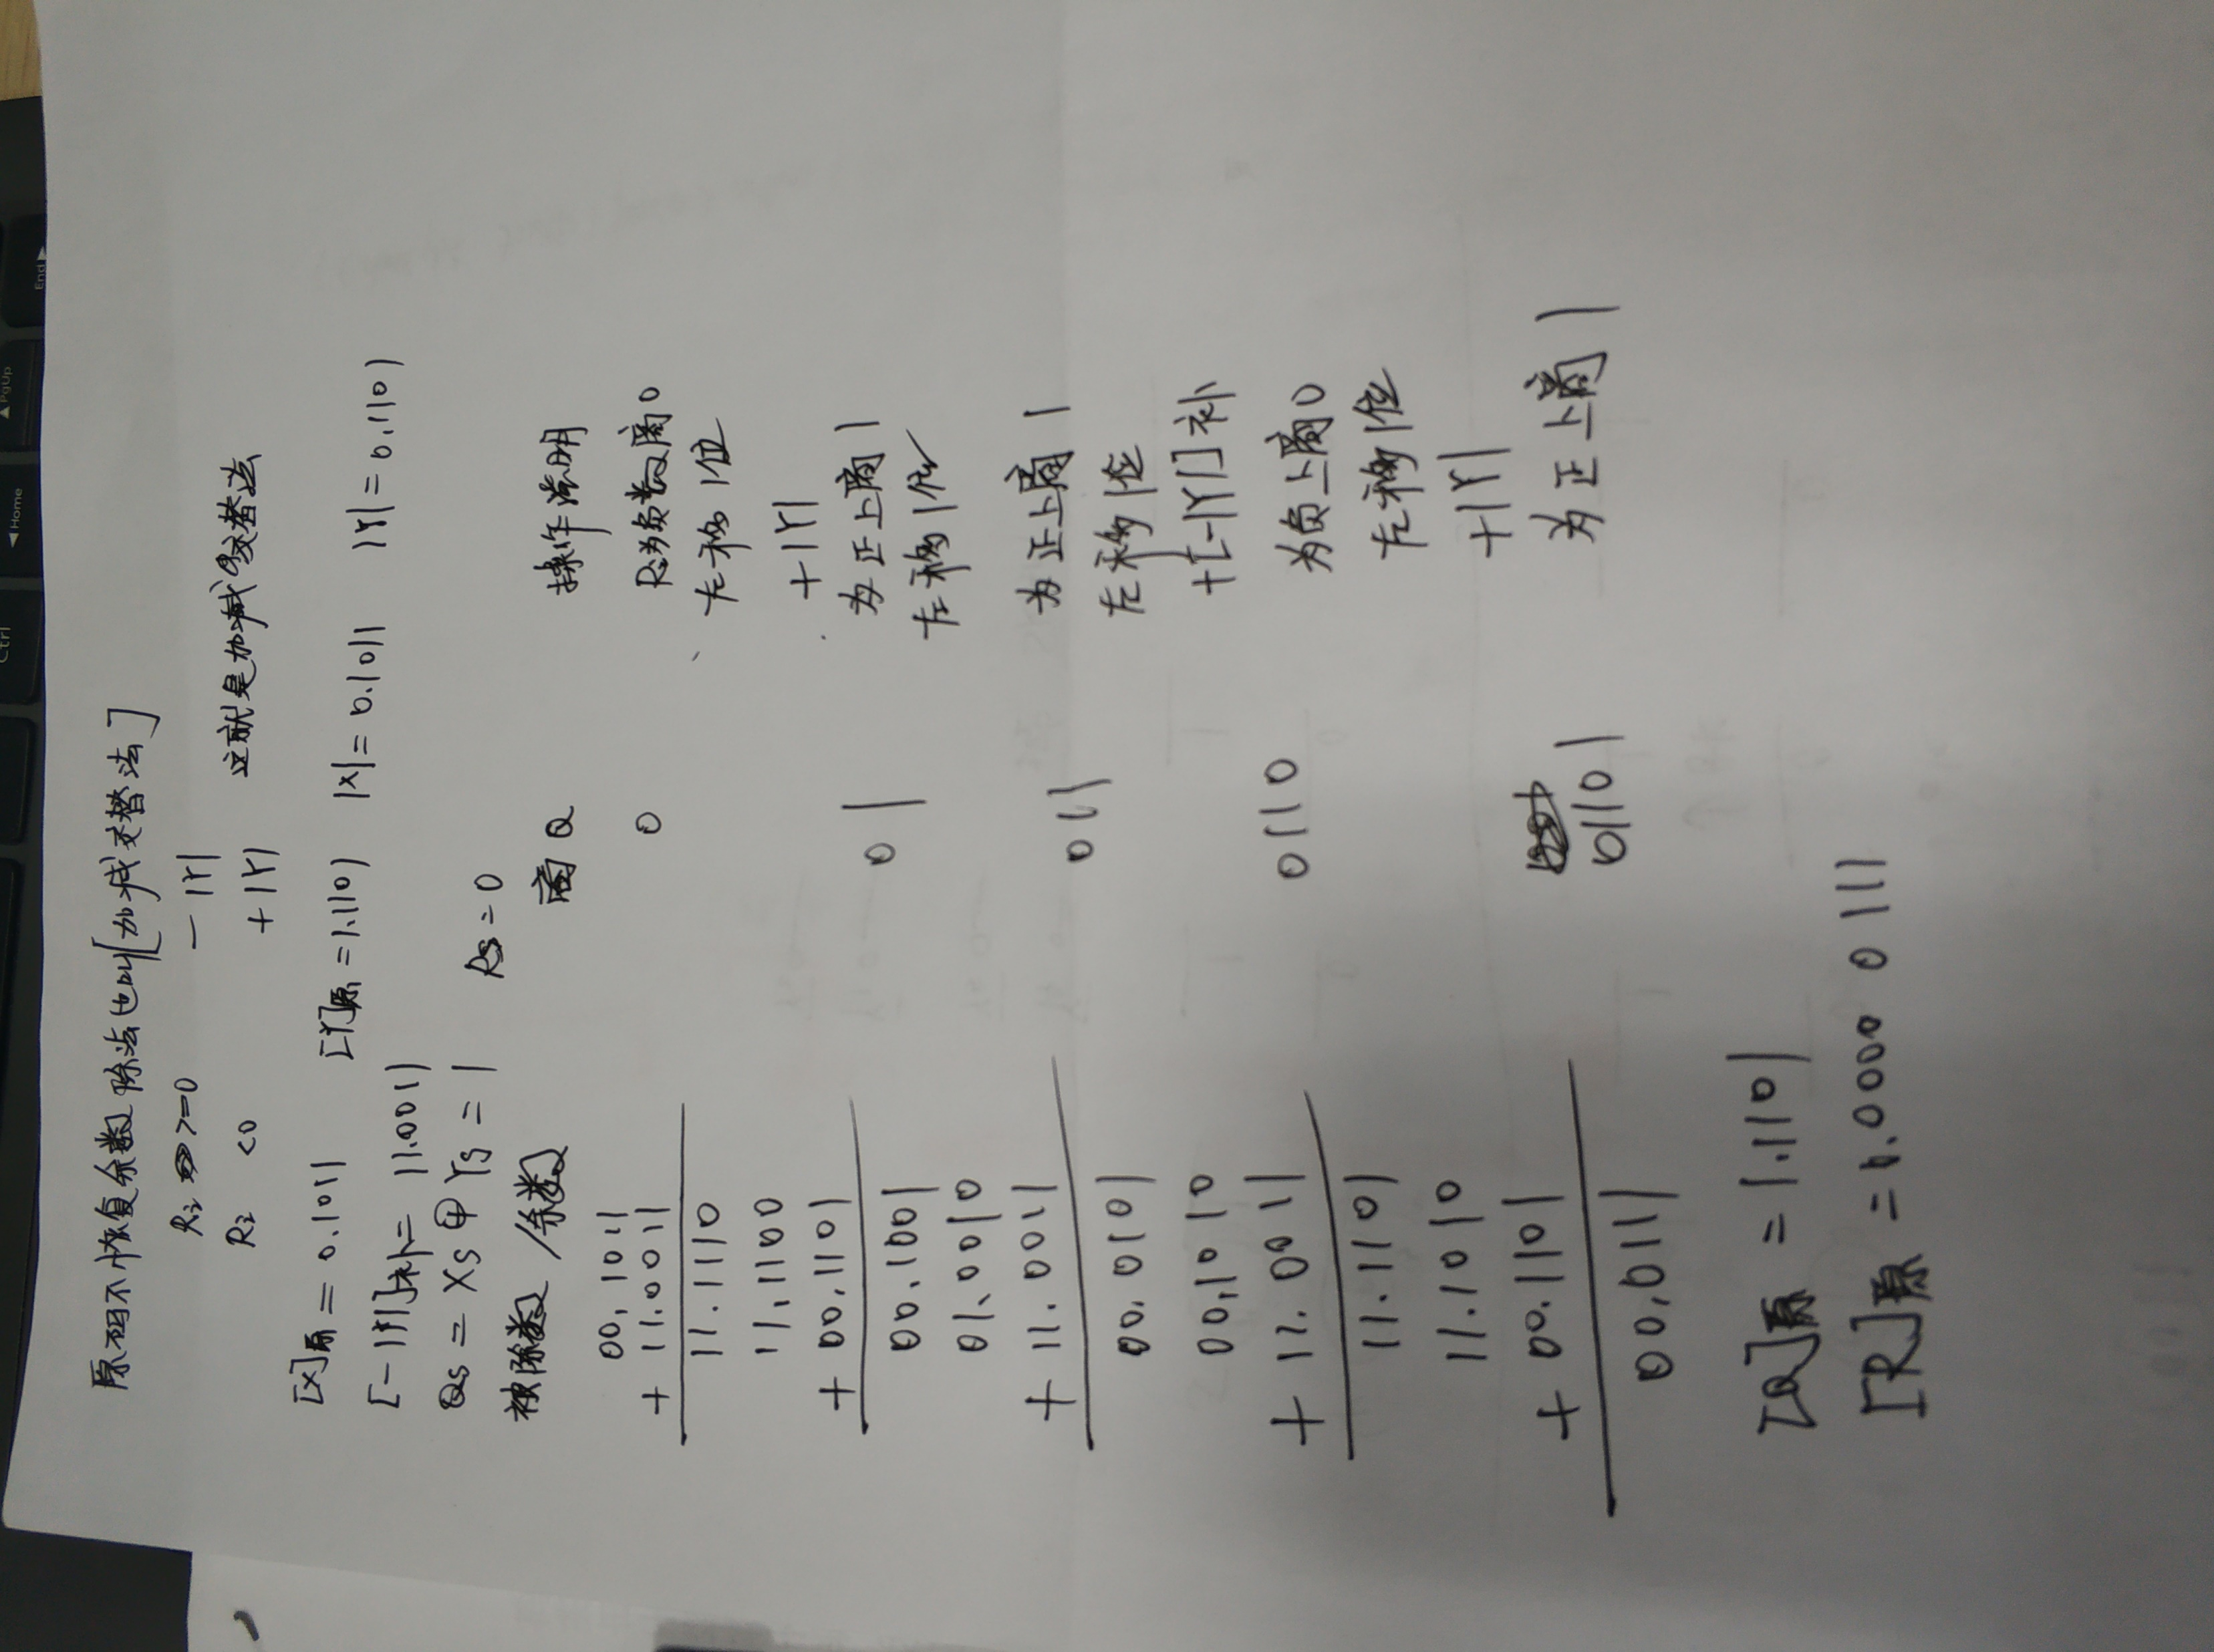 原码不恢复余数除法也叫[加减交替法]
Ri >=0 －|Y|
Ri <0 +|Y| 这就是加减交替法
[X]原=0.1011 [Y]原=1.1101 |X|=0.1011 |Y|=0.1101
[-|Y|]补=11.0011
Qs = Xs⊕Ys = 1 Rs=0
被除数/余数 商Q 操作说明
00.1011
+ 11.0011 0 R为负数商0
11.1110 左移1位
11.1100
+ 00.1101 +|Y|
00.1001 01 为正上商1
01.0010 左移1位
+ 11.0011
00.0101 011 为正上商1
00.1010 左移1位
+ 11.0011 +[-|Y|]补
11.1101 0110 为负上商0
11.1010 左移1位
+ 00.1101 +|Y|
00.0111 01101 为正上商1
[Q]原=1.1101
[R]原=0.0000 0111
Ctrl
Home
PgUp
End